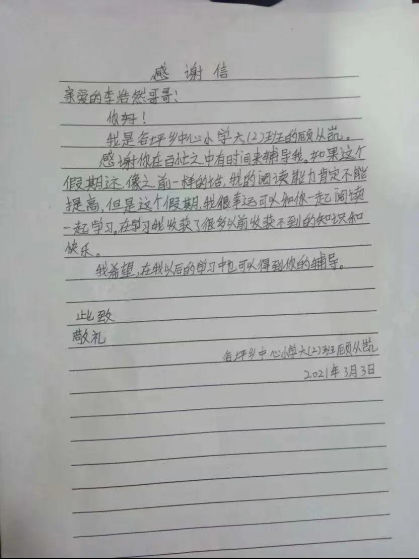 感谢信
亲爱的李浩然哥哥:
你好!
我是合坪乡中心小学六(2)班的顾从凯。
感谢你在百忙之中有时间来辅导我。如果这个
假期还像之前一样的话,我的阅读能力肯定不能
提高,但是这个假期,我很幸运可以和你一起阅读
一起学习。在学习我收获了很多以前收获不到的知识和
快乐。
我希望,在我以后的学习中也可以得到你的辅导。
此致
敬礼
合坪乡中心小学六(2)班顾从凯
2021年3月3日